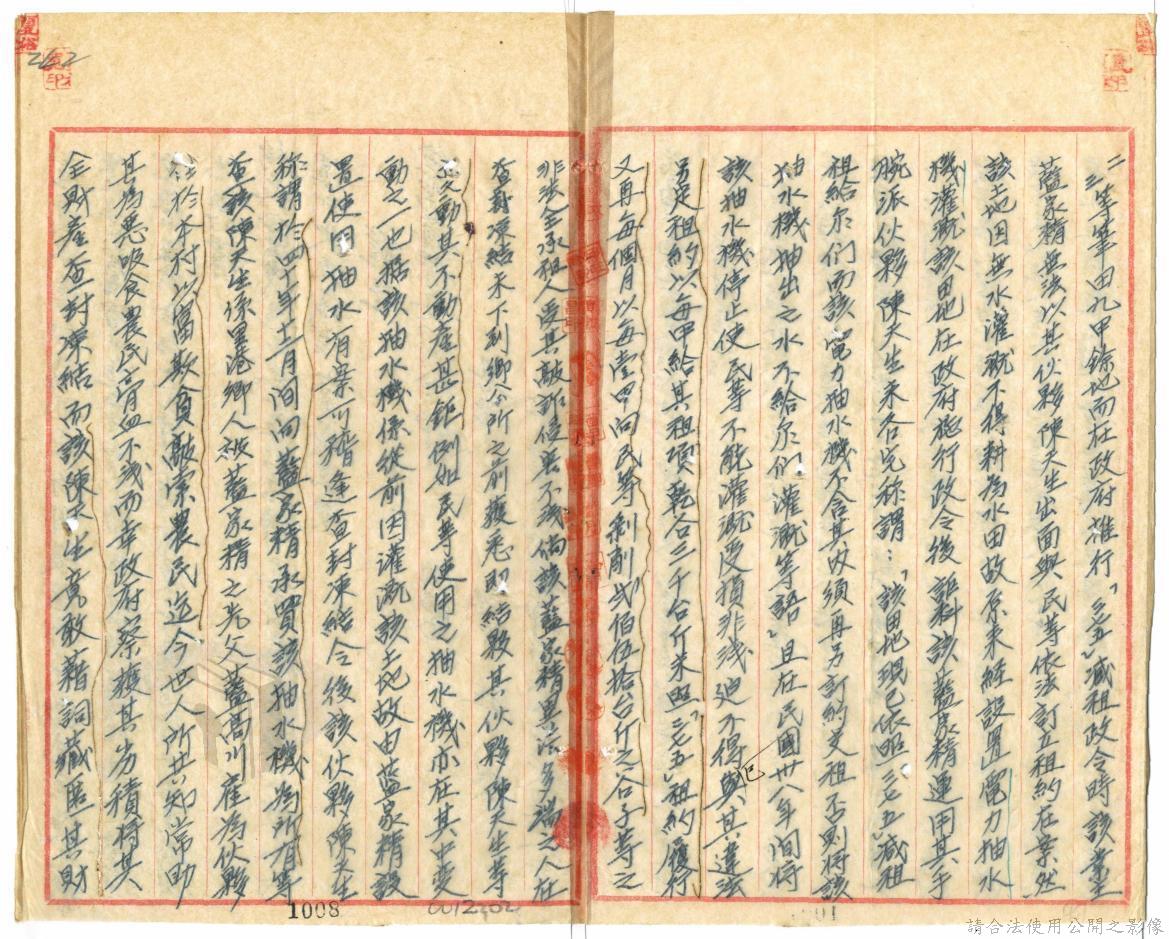 二三等筆田九甲餘地而在政府准行「三七五」減租政令時該業主
藍家精無法以其伙夥陳天生出面與民等依法訂立租約在案然
該土地因無水灌溉不得耕為水田故原來經設置電力抽水
機灌溉該田地在政府施行政令後詎料該藍家精運用其手
腕派伙夥陳天生來各宅称謂：「該田地現已依照三七五減租
租給尔們而該電力抽水機不含其內須再另訂約見租否則将該
抽水機抽出之水不給尔們灌溉等語」且在民國卅八年間将
該抽水機停止使民等不能灌溉受損非浅迫不得已與其違法
另定租約以每甲給其租項乾谷三千台斤来照「三七五」租約履行
又再每個月以每壹甲向民等剝削弍佰伍拾台斤之谷子等之
非法全承租人受其敲詐侵害不浅倘該藍家精異法多端之人在
查封凍結未下到鄉公所之前獲悉即結夥其伙夥陳天生等
變動其不動產甚鉅例如民等使用之抽水機亦在其中变
動之一也据該抽水機係從前因灌溉該土地故由藍家精設
置使田抽水有案可稽逢查封凍結令後該伙夥陳天生
称謂於四十年十二月間向藍家精承買該抽水機為所有等
查該陳天生係里港鄉人被藍家精之先父藍高川雇為伙夥
往於本村以富欺貧敲索農民迄今世人所共知常助
其為惡吸食農民膏血不浅而幸政府察獲其劣積将其
全財產查封凍結而該陳天生竟敢藉詞藏匿其財
1008
0012202
262
請合法使用公開之影像